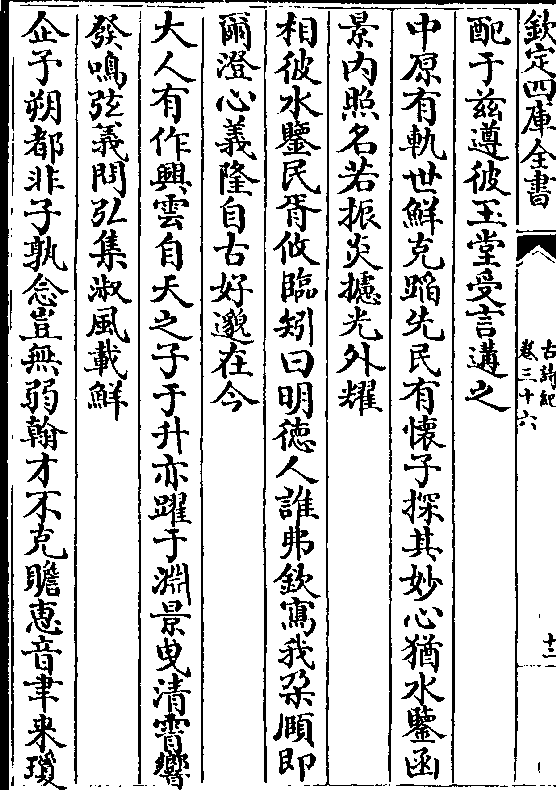 欽定四庫全書
古詩紀
卷三十六
十三
配于兹遵彼玉堂受言遘之
中原有軌世鮮克蹈先民有懷子探其妙心猶水鑒函
景内照名若振炎摅光外耀
相彼水鑒民胥攸臨矧曰明德人誰弗欽寫我朶頤即
爾澄心義隆自古好邈在今
大人有作興雲自天之子于升亦躍于淵景曳清霄響
發鳴弦義問弘集淑風載鮮
企予朔都非子孰念豈無弱翰才不克贍惠音聿来瓊